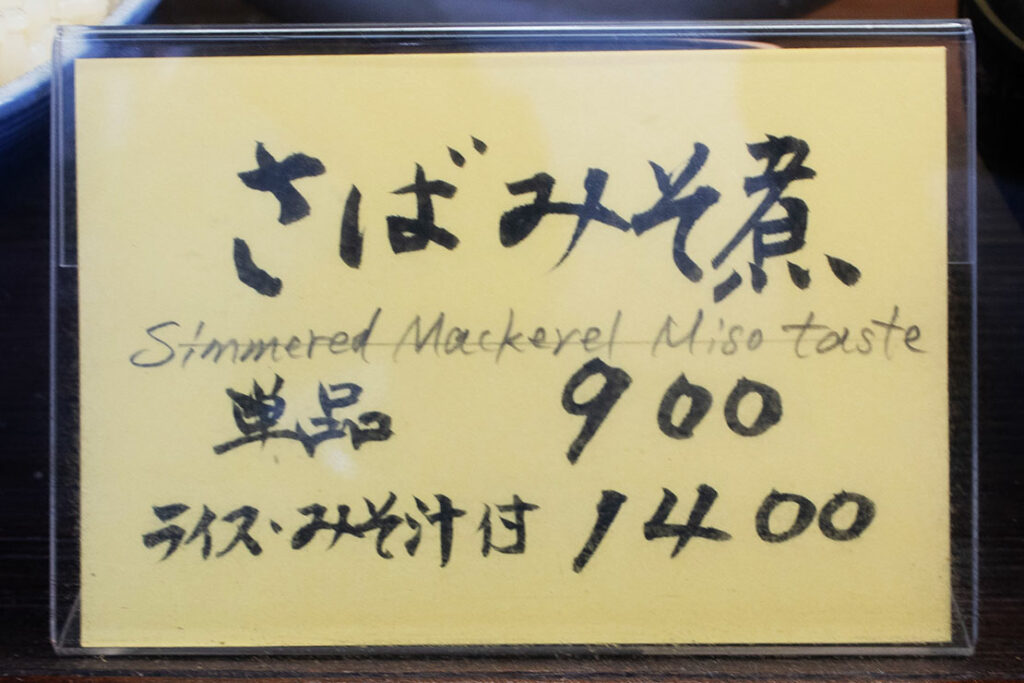 さばみそ煮
Simmered Mackerel Miso taste
単品 900
ライス・みそ汁付 1400